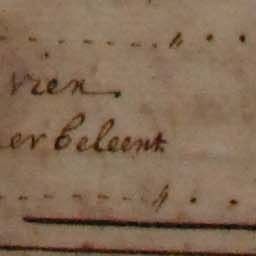 vrien.
er beleent